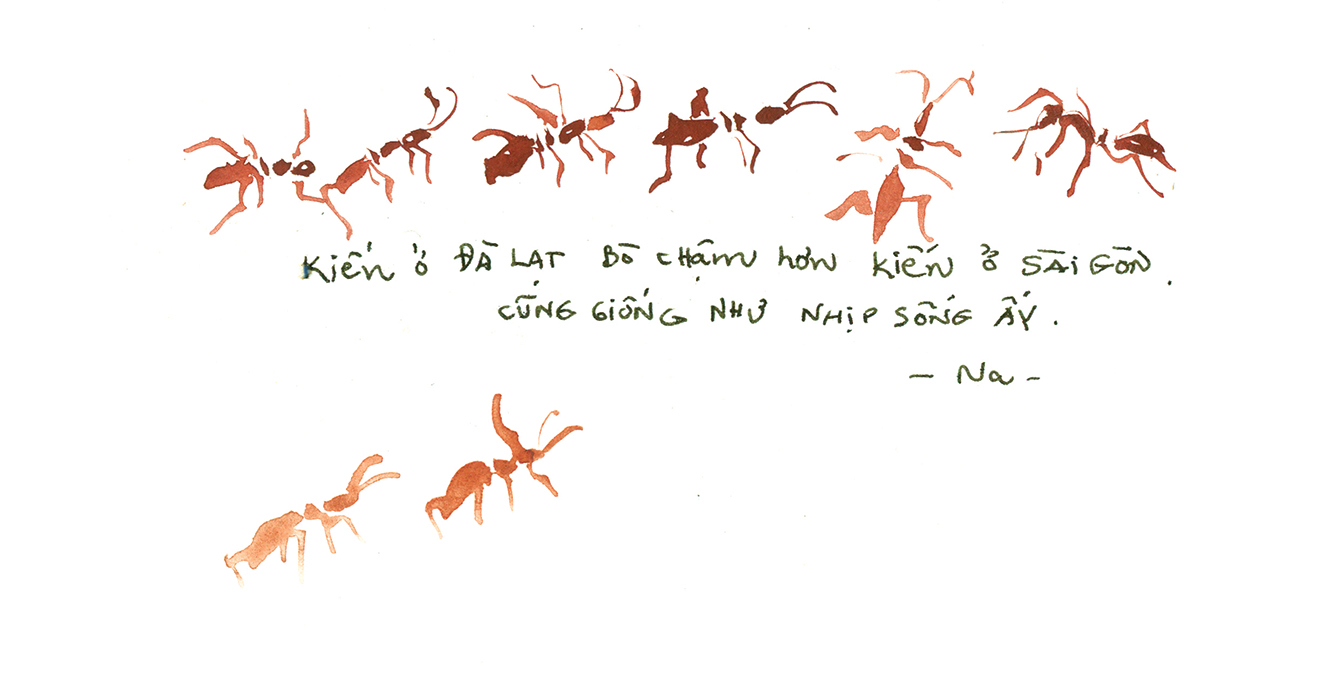 Kiến ở ĐÀ LẠT BÒ CHẬM hơn kiến ở SÀI GÒN.
CŨNG GIỐNG NHƯ NHỊP SỐNG ẤY.
- Na -